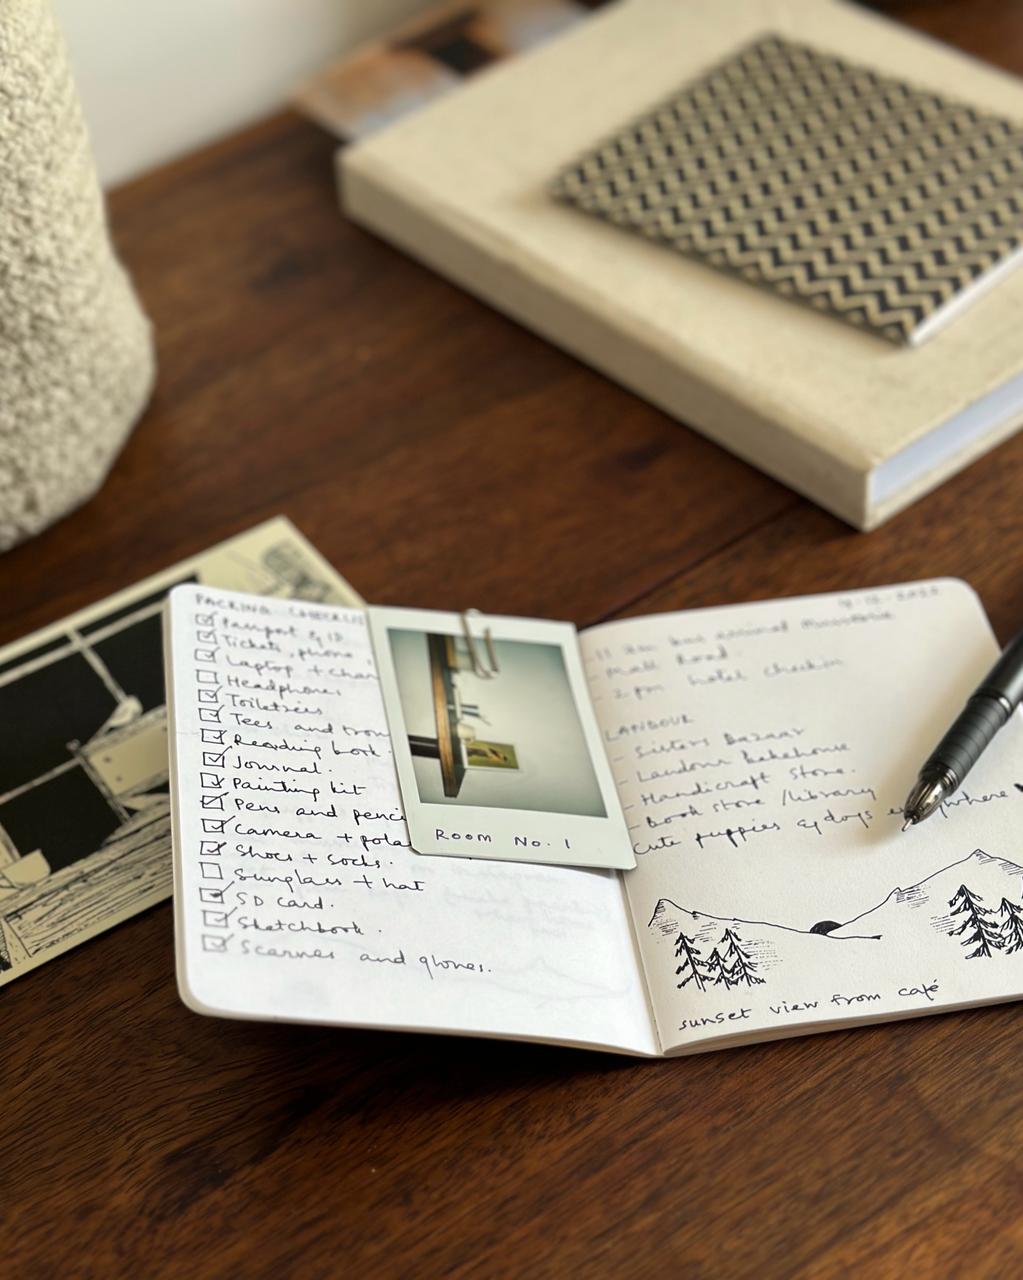 PACKING CHECKLIS
Passport & ID
Tickets, phone,
Laptop + char
Headphones
Toiletries
Tees and trou
Reading book
Journal.
Painting kit
Pens and penci
Camera + pola
Shoes + socks.
Sunglass + hat
SD card.
Sketchbook.
Scarves and gloves.
ROOM No. 1
- 11 am bus arrival Mussoorie
- Mall Road
- 2 pm hotel checkin
LANDOUR
- Sisters Bazaar
- Landour Bakehouse
- Handicraft store.
- Book store / library
Cute puppies & dogs
sunset view from café